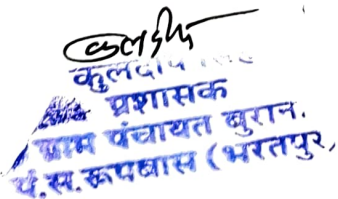 कुलदीप
कुलदीप सिंह
प्रशासक
ग्राम पंचायत खुरान.
पं.स.रूपबास (भरतपुर,